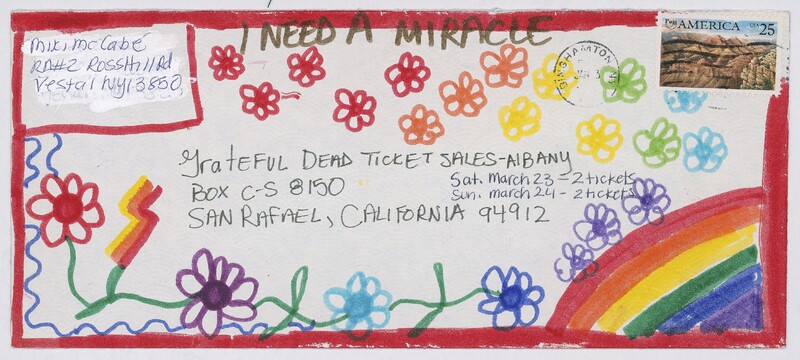 I NEED A MIRACLE
Miki McCabé
RD#2 Ross Hill Rd
Vestal NY 13850
AMERICA 25
BINGHAMTON
Grateful Dead Ticket Sales-Albany
Box C-S 8150
San Rafael, California 94912
Sat. March 23 - 2 tickets
Sun. march 24 - 2 tickets